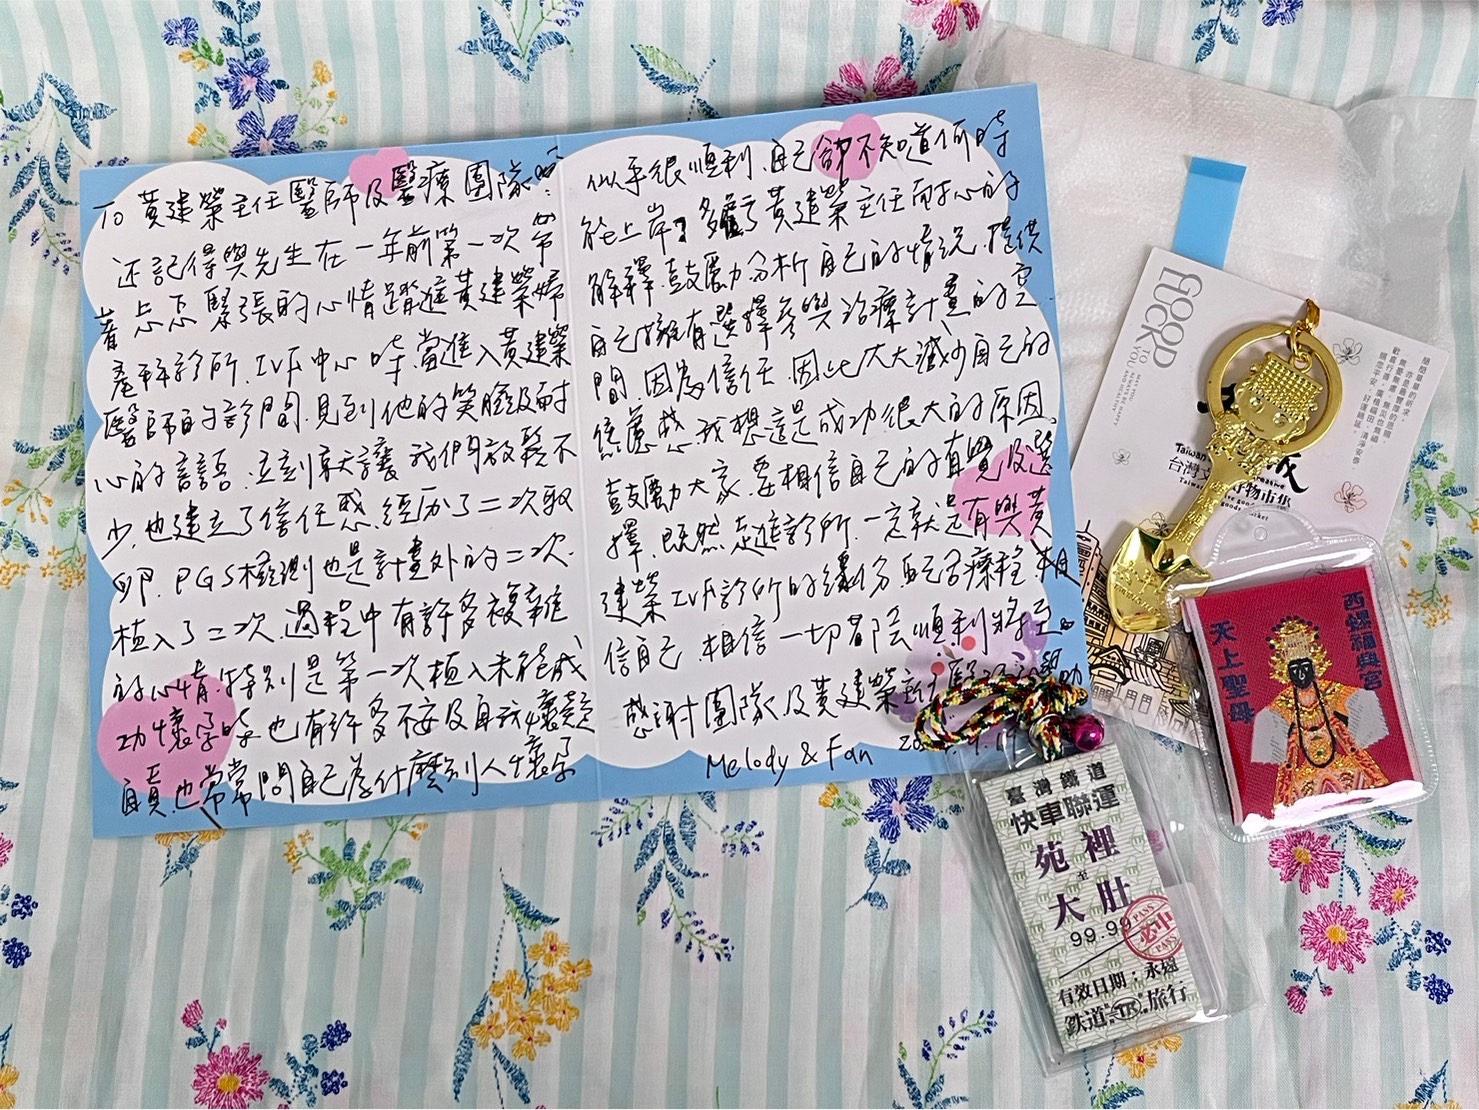 To 黃建榮主任醫師及醫療團隊
還記得與先生在一年前第一次帶
著忐忑緊張的心情踏進黃建榮婦
產科診所.IVF中心時.當進入黃建榮
醫師的診間.見到他的笑臉及耐
心的話語.立刻就讓我們放鬆不
少.也建立了信任感.經歷了二次取
卵.PGS檢測也是計畫外的二次.
植入了二次.過程中有許多複雜
的心情.特別是第一次植入未能成
功懷孕時.也有許多不安及自我懷疑
自責.也常常問自己為什麼別人懷孕
似乎很順利.自己卻不知道何時
能上岸?多虧了黃建榮主任耐心的
解釋.鼓勵分析自己的情況.提供
自己擁有選擇參與治療計畫的空
間.因為信任.因此大大減少自己的
焦慮感.我想這是成功很大的原因.
鼓勵大家.要相信自己的直覺及選
擇.既然走進診所.一定就是有與黃
建榮IVF診所的緣份.配合療程.相
信自己.相信一切都會順利將至。
感謝團隊及黃建榮主任醫
Melody & Fan
GOOD
LUCK
TO
YOU
MAY YOU
ALWAYS BE HAPPY
AND HEALTHY
簡簡單單的祈求,
亦是最豐厚的恩賜
無憂無慮,無災也無禍
歡喜行善,廣植福田,清淨安泰
願您平安,好運綿延。
Taiwan
台灣
好物市集
西螺福興宮
天上聖母
臺灣鐵道
快車聯運
苑裡
至
大肚
99.99
PASS
必中
PASS
有效日期:永遠
鉄道 TR 旅行